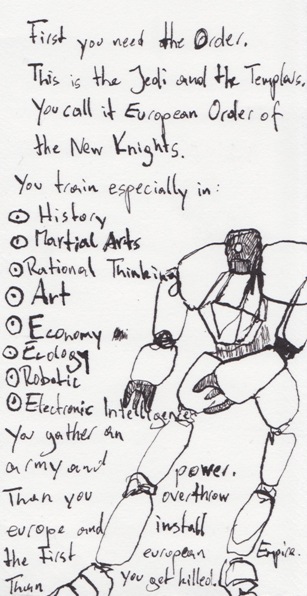 First you need the Order.
This is the Jedi and the Templars.
You call it European Order of
the New Knights.
You train especially in:
History
Martial Arts
Rational Thinking
Art
Economy
Ecology
Robotic
Electronic Intelligence
You gather an
army and power.
Than you overthrow
europe and install
the First european Empire.
Than you get killed.